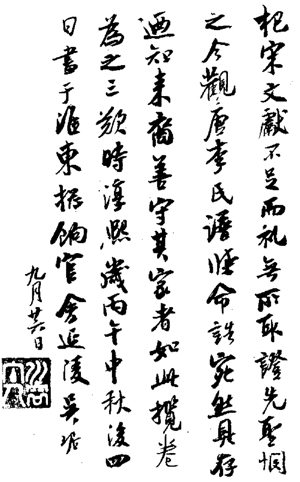 杞宋文獻不足而礼無所取證先聖惘
之今觀唐李氏譜牒命誥宛然具存
迺知来裔善守其家者如此攬卷
為之三歎時淳熙歲丙午中秋後四
日書于淮東揔餉官舍延陵吳
九月廿六日